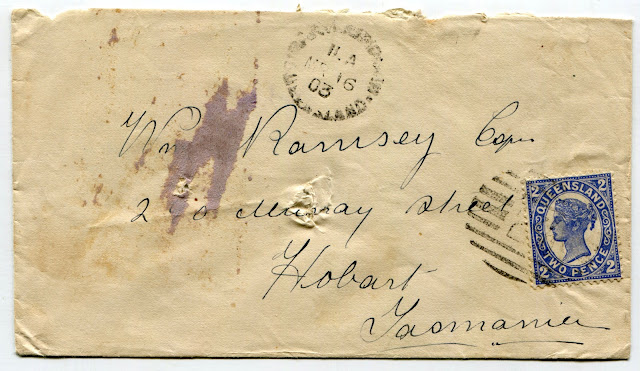 11.A
16
03
Wm Ramsey
Murray Street
Hobart
Tasmania
2 2
QUEENSLAND
TWO PENCE
2 2